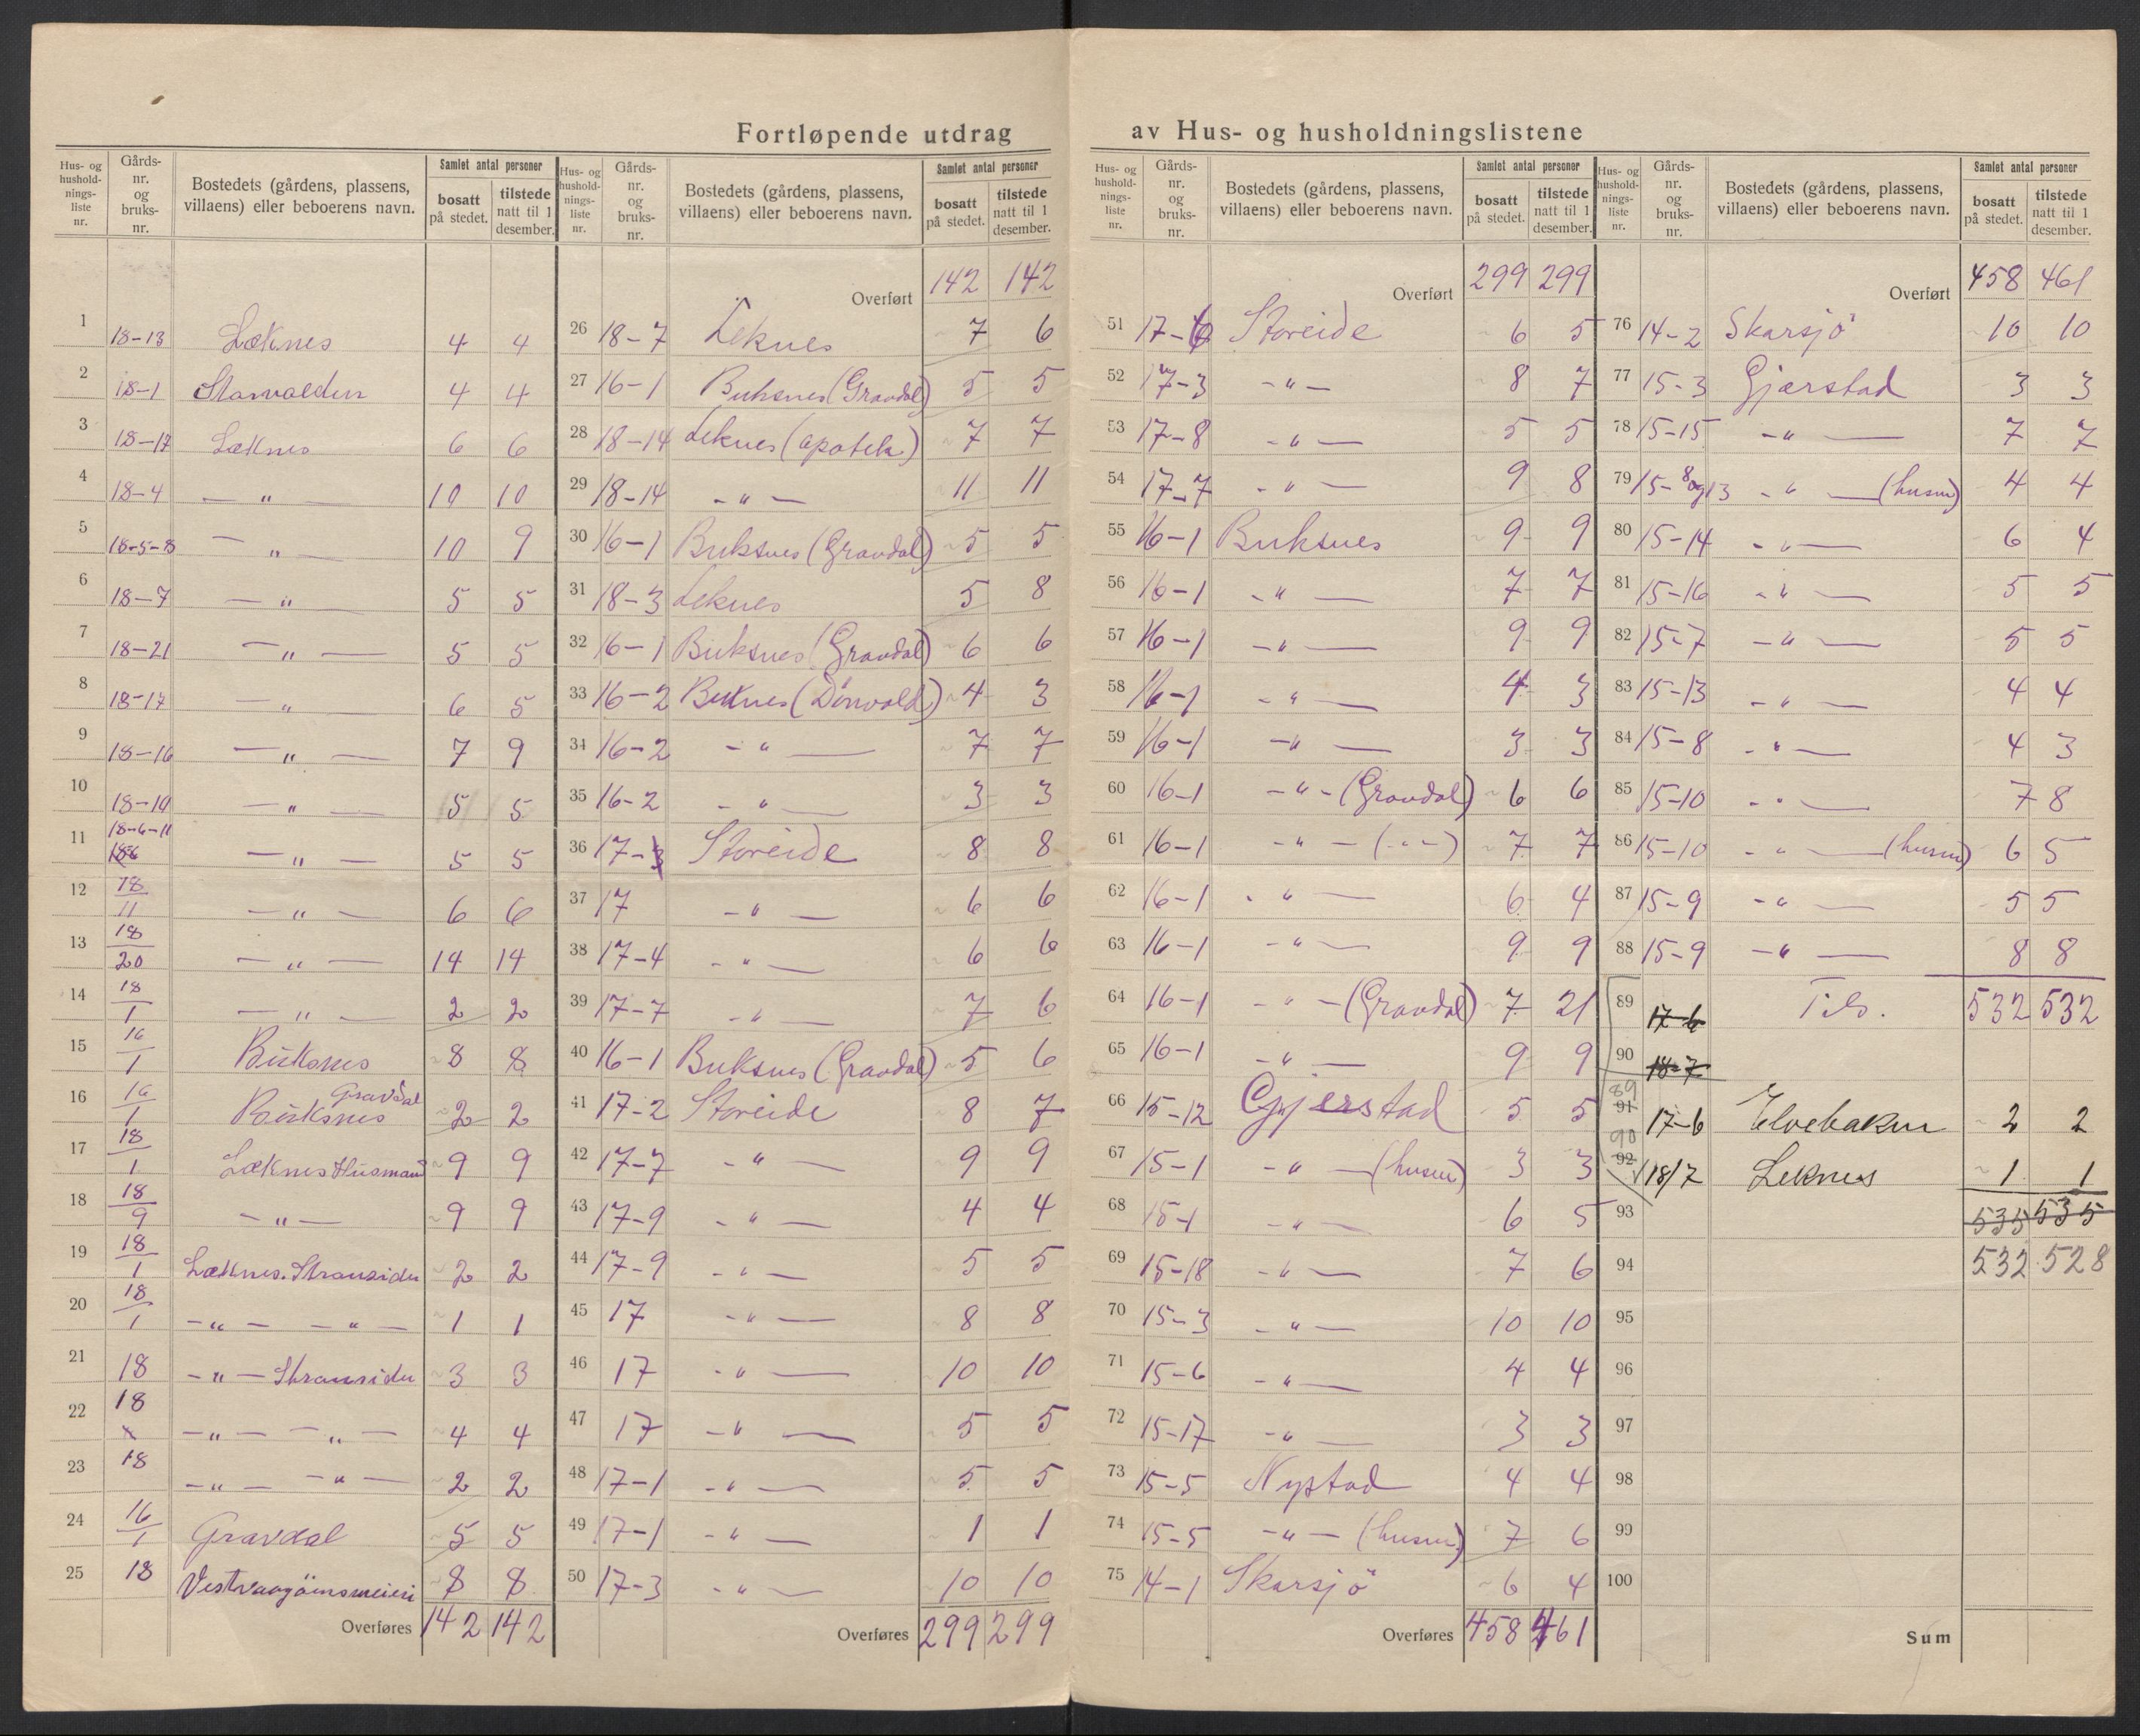 Fortløpende utdrag av Hus- og husholdningslistene
Hus- og hushold-nings-liste nr. Gårds-nr. og bruks-nr. Bostedets (gårdens, plassens, villaens) eller beboerens navn. Samlet antal personer bosatt på stedet. tilstede natt til 1 desember.
1 18-13 Læknes 4 4
2 18-1 Storvolden 4 4
3 18-17 Læknes 6 6
4 18-4 — " — 10 10
5 18-5-8 — " — 10 9
6 18-7 — " — 5 5
7 18-21 — " — 5 5
8 18-17 — " — 6 5
9 18-16 — " — 7 9
10 18-19 — " — 5 5
11 18-6-11 — " — 5 5
12 18/11 — " — 6 6
13 18/20 — " — 14 14
14 18/1 — " — 2 2
15 16/1 Buksnes 8 8
16 16/1 Buksnes Gravdal 2 2
17 18/1 Læknes Husmand 9 9
18 18/9 — " — 9 9
19 18/1 Læknes. Stransiden 2 2
20 18/1 — " — — " — 1 1
21 18 — " — Stransiden 3 3
22 18 — " — — " — 4 4
23 18 — " — — " — 2 2
24 16/1 Gravdal 5 5
25 18 Vestvaagöinsmeieri 8 8
Overføres 142 142
Hus- og hushold-nings-liste nr. Gårds-nr. og bruks-nr. Bostedets (gårdens, plassens, villaens) eller beboerens navn. Samlet antal personer bosatt på stedet. tilstede natt til 1 desember.
Overført 142 142
26 18-7 Leknes 7 6
27 16-1 Buksnes (Gravdal) 5 5
28 18-14 Leknes (apotek) 7 7
29 18-14 - " - 11 11
30 16-1 Buksnes (Gravdal) 5 5
31 18-3 Leknes 5 8
32 16-1 Buksnes (Gravdal) 6 6
33 16-2 Buknes (Dönvold) 4 3
34 16-2 - " — 7 7
35 16-2 - " — 3 3
36 17- Storeide 8 8
37 17 - " — 6 6
38 17-4 - " — 6 6
39 17-7 - " — 7 6
40 16-1 Buksnes (Gravdal) 5 6
41 17-2 Storeide 8 7
42 17-7 - " — 9 9
43 17-9 - " — 4 4
44 17-9 - " — 5 5
45 17 - " — 8 8
46 17 - " — 10 10
47 17 - " — 5 5
48 17-1 - " — 5 5
49 17-1 - " — 1 1
50 17-3 - " — 10 10
Overføres 299 299
Hus- og hushold-nings-liste nr. Gårds-nr. og bruks-nr. Bostedets (gårdens, plassens, villaens) eller beboerens navn. Samlet antal personer bosatt på stedet. tilstede natt til 1 desember.
Overført 299 299
51 17-6 Storeide 6 5
52 17-3 - " - 8 7
53 17-8 - " — 5 5
54 17-7 - " — 9 8
55 16-1 Buksnes 9 9
56 16-1 - " — 7 7
57 16-1 - " — 9 9
58 16-1 - " — 4 3
59 16-1 - " — 3 3
60 16-1 - " - (Gravdal) 6 6
61 16-1 - " - (- " -) 7 7
62 16-1 - " — 6 4
63 16-1 - " — 9 9
64 16-1 - " - (Gravdal) 7 21
65 16-1 - " — 9 9
66 15-12 Gjerstad 5 5
67 15-1 - " — (husm) 3 3
68 15-1 - " — 6 5
69 15-18 - " — 7 6
70 15-3 - " — 10 10
71 15-6 - " — 4 4
72 15-17 - " — 3 3
73 15-5 Nystad 4 4
74 15-5 - " — (husm) 7 6
75 14-1 Skarsjö 6 4
Overføres 458 461
Hus- og hushold-nings-liste nr. Gårds-nr. og bruks-nr. Bostedets (gårdens, plassens, villaens) eller beboerens navn. Samlet antal personer bosatt på stedet. tilstede natt til 1 desember.
Overført 458 461
76 14-2 Skarsjö 10 10
77 15-3 Gjærstad 3 3
78 15-15 - " — 7 7
79 15-8 og 13 - " — (husm) 4 4
80 15-14 - " — 6 4
81 15-16 - " — 5 5
82 15-7 - " — 5 5
83 15-13 - " — 4 4
84 15-8 - " — 4 3
85 15-10 - " — 7 8
86 15-10 - " — (husm) 6 5
87 15-9 - " — 5 5
88 15-9 - " — 8 8
89 17-6 Tils. 532 532
90 18-7
89 91 17-6 Elvebaken 2 2
90 92 18/7 Leknes 1 1
93 535 535
94 532 528
95
96
97
98
99
100
Sum